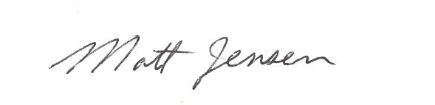 Matt Jensen